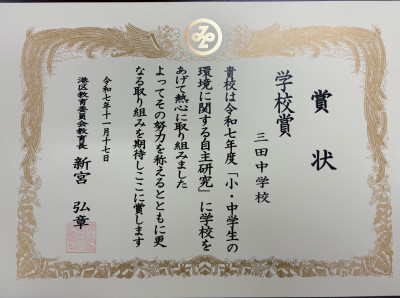 賞状
学校賞
三田中学校
貴校は令和七年度「小・中学生の
環境に関する自主研究」に学校を
あげて熱心に取り組みました
よってその努力を称えるとともに更
なる取り組みを期待しここに賞します
令和七年十一月十七日
港区教育委員会教育長 新宮 弘章